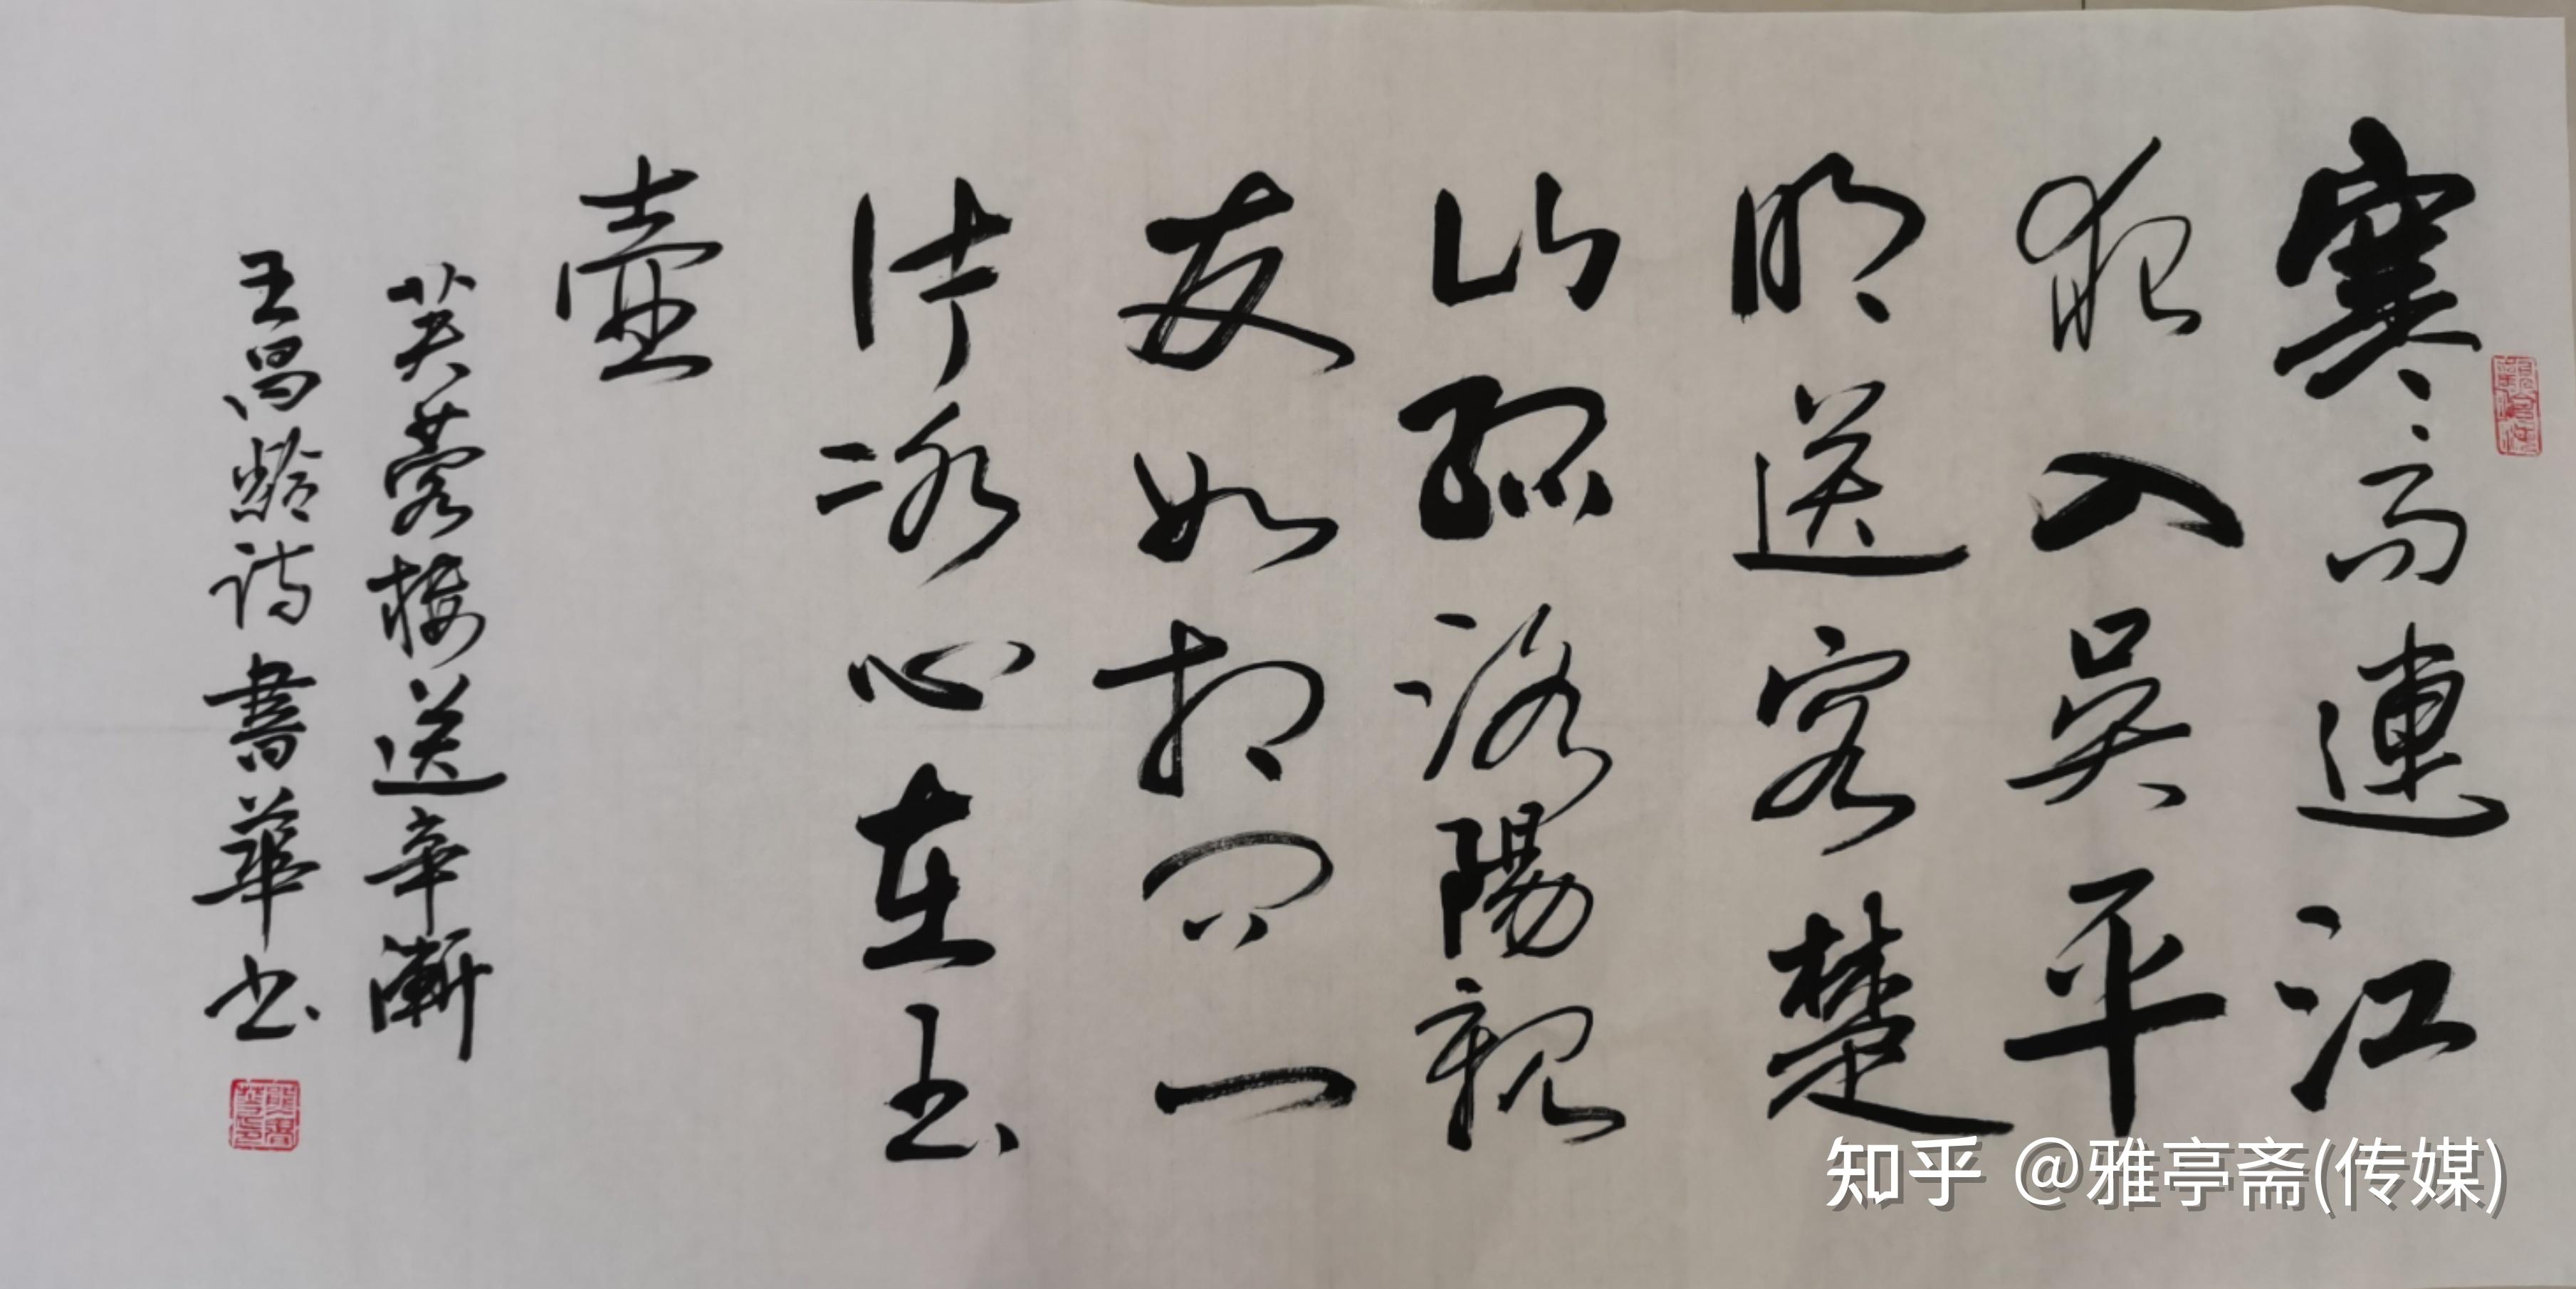 寒雨連江
夜入吳平
明送客楚
山孤洛陽親
友如相問一
片冰心在玉
壺
芙蓉樓送辛漸
王昌齡詩書華书
知乎 @雅亭斋(传媒)